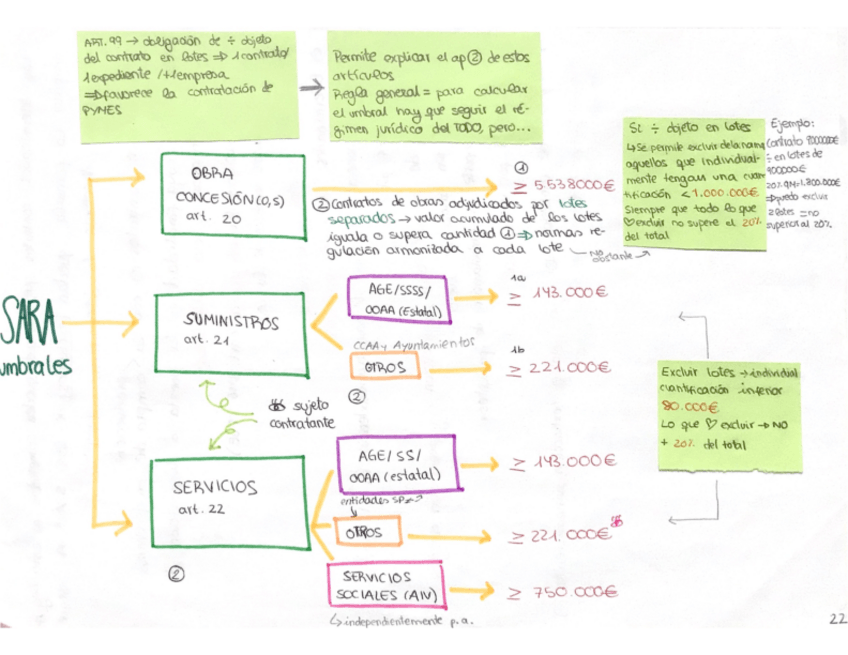 ART. 99 → obligación de ÷ objeto
del contrato en lotes ⇒ 1 contrato/
1 expediente /+1 empresa
⇒ favorece la contratación de
PYMES
Permite explicar el ap ② de estos
artículos
Regla general = para calcular
el umbral hay que seguir el ré-
gimen jurídico del TODO, pero...
Si ÷ objeto en lotes
↳ Se permite excluir de la
aquellos que individual-
mente tengan una cuan
tificación < 1.000.000€
Siempre que todo lo que
♡ excluir no supere el 20%
del total
Ejemplo:
Contrato 9000000€
÷ en lotes de
900000€
20% 9M = 1.800.000€
⇒ puedo excluir
2 lotes = no
superior al 20%
OBRA
CONCESIÓN (O,S)
art. 20
①
≥ 5.538000€
② Contratos de obras adjudicados por lotes
separados → valor acumulado de los lotes
iguala o supera cantidad ① ⇒ normas re-
gulación armonizada a cada lote
No obstante →
SARA
umbrales
SUMINISTROS
art. 21
AGE/SSSS/
OOAA (Estatal)
1a
≥ 143.000€
CCAA y Ayuntamientos
OTROS
1b
≥ 221.000€
②
sujeto
contratante
Excluir lotes → individual
cuantificación inferior
80.000€
Lo que ♡ excluir → NO
+ 20% del total
SERVICIOS
art. 22
②
AGE/SS/
OOAA (estatal)
≥ 143.000€
entidades SP
OTROS
≥ 221.000€
SERVICIOS
SOCIALES (AIV)
≥ 750.000€
↳ independientemente p.a.
22